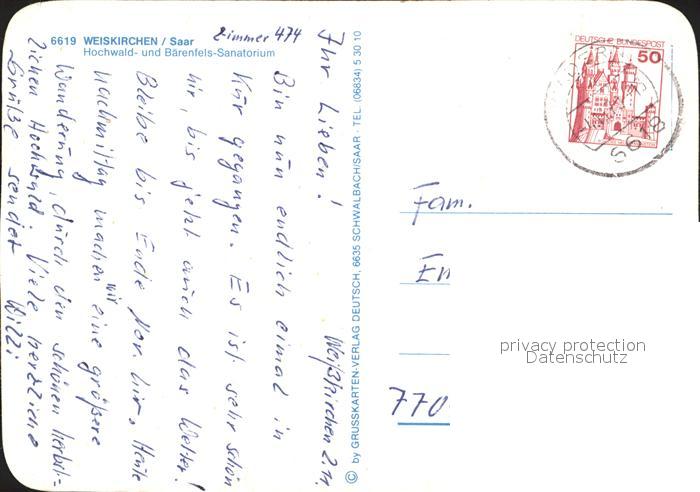 6619 WEISKIRCHEN / Saar
Hochwald- und Bärenfels-Sanatorium
Zimmer 474
Weißkirchen 2.11.
Ihr Lieben!
Bin nun endlich einmal in
Kur gegangen. Es ist sehr schön
hir, bis jetzt auch das Wetter!
Bleibe bis Ende Nov. hir, Heute
nachmittag machen wir eine größere
Wanderung, durch den schönen herbst-
lichen Hochwald. Viele herzliche
Grüße sendet Willi
© by GRUSSKARTEN-VERLAG DEUTSCH, 6635 SCHWALBACH/SAAR · TEL. (06834) 5 30 10
DEUTSCHE BUNDESPOST
50
Fam.
En
770
privacy protection
Datenschutz